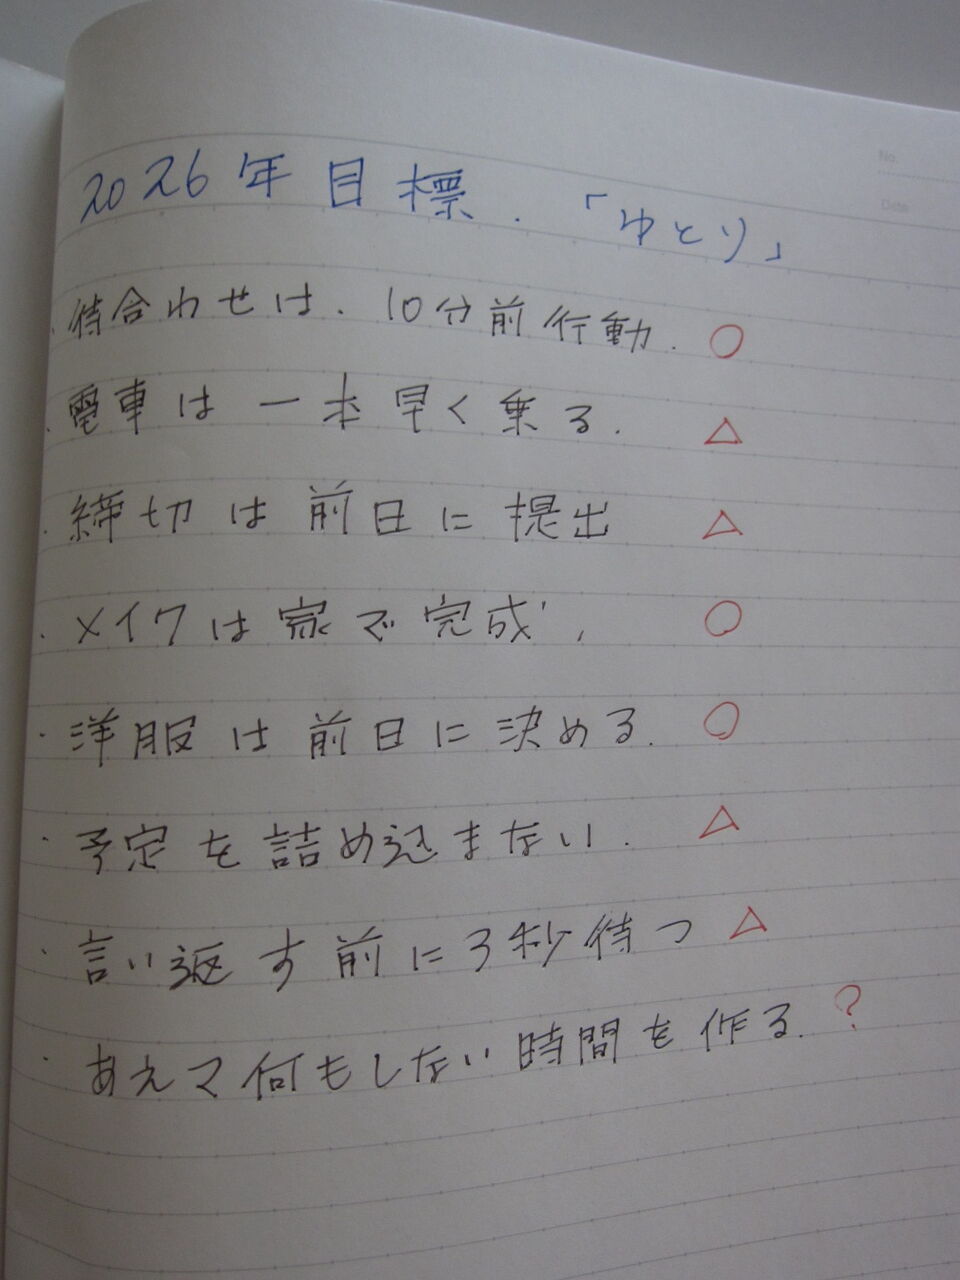 No.
Date
2026年目標.「ゆとり」
・待合わせは、10分前行動. ○
・電車は一本早く乗る. △
・締切は前日に提出 △
・メイクは家で完成、 ○
・洋服は前日に決める. ○
・予定を詰め込まない. △
・言い返す前に3秒待つ △
・あえて何もしない時間を作る. ?